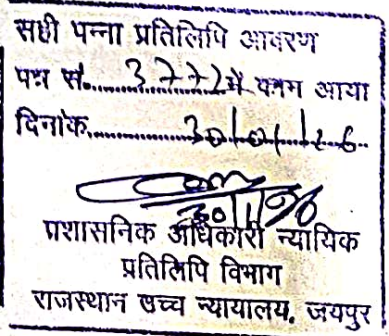 सही पन्ना प्रतिलिपि आवरण
पत्र सं. 3772 में काम आया
दिनांक 30/01/26
30/1/26
प्रशासनिक अधिकारी न्यायिक
प्रतिलिपि विभाग
राजस्थान उच्च न्यायालय, जयपुर